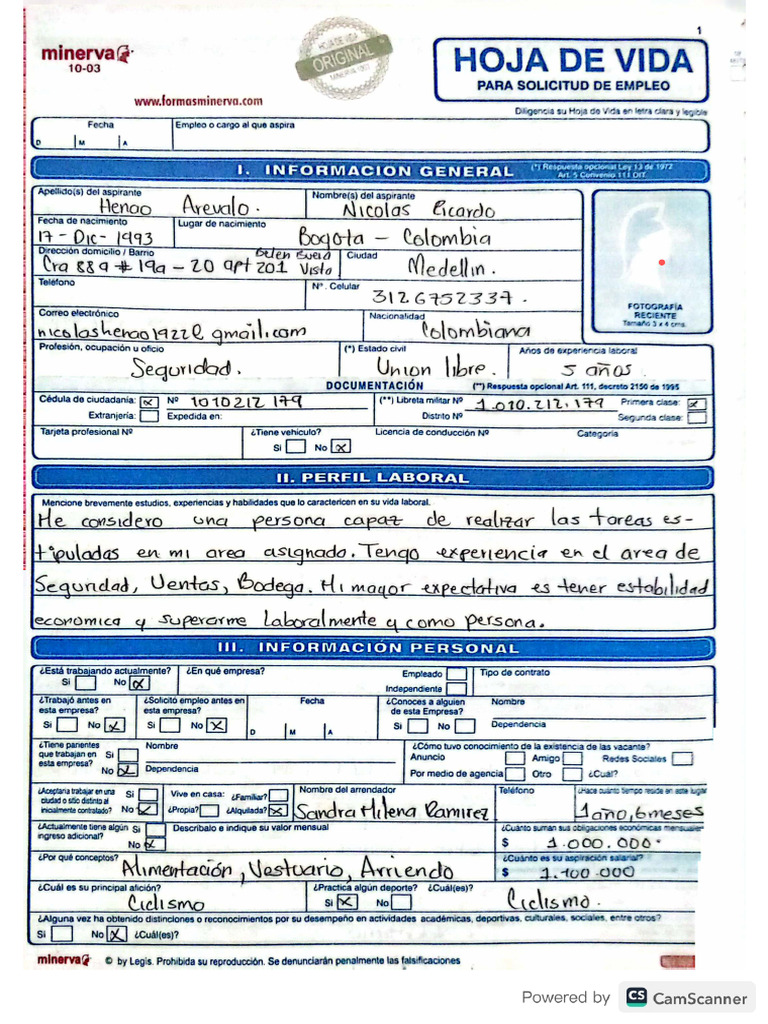 1
minerva
10-03
HOJA DE VIDA
ORIGINAL
MINERVA 1003
HOJA DE VIDA
PARA SOLICITUD DE EMPLEO
www.formasminerva.com
Diligencia su Hoja de Vida en letra clara y legible
Fecha Empleo o cargo al que aspira
D M A
I. INFORMACION GENERAL (*) Respuesta opcional Ley 13 de 1972
Art. 5 Convenio 111 OIT.
Apellido(s) del aspirante Nombre(s) del aspirante
Henao Arevalo. Nicolas Ricardo
Fecha de nacimiento Lugar de nacimiento
17 - Dic - 1993 Bogota - Colombia
Dirección domicilio / Barrio Ciudad
Cra 88 a # 19a - 20 apt 201 Belen Buena Vista Medellin.
Teléfono Nº. Celular
3126752337.
Correo electrónico Nacionalidad
nicolashenao1922@gmail.com Colombiana
FOTOGRAFÍA
RECIENTE
Tamaño 3 x 4 cms.
Profesión, ocupación u oficio (*) Estado civil Años de experiencia laboral
Seguridad. Union libre. 5 años.
DOCUMENTACIÓN (**) Respuesta opcional Art. 111, decreto 2150 de 1995
Cédula de ciudadanía: x Nº 1010212179 (**) Libreta militar Nº 1.010.212.179 Primera clase: x
Extranjería: Expedida en: Distrito Nº Segunda clase:
Tarjeta profesional Nº ¿Tiene vehículo? Licencia de conducción Nº Categoría
Si No x
II. PERFIL LABORAL
Mencione brevemente estudios, experiencias y habilidades que lo caractericen en su vida laboral.
Me considero una persona capaz de realizar las tareas es-
tipuladas en mi area asignada. Tengo experiencia en el area de
Seguridad, Ventas, Bodega. Mi mayor expectativa es tener estabilidad
economica y superarme laboralmente y como persona.
III. INFORMACIÓN PERSONAL
¿Está trabajando actualmente? ¿En qué empresa? Empleado Tipo de contrato
Si No x Independiente
¿Trabajó antes en esta empresa? ¿Solicitó empleo antes en esta empresa? Fecha ¿Conoces a alguien de esta Empresa? Nombre
Si No x Si No x D M A Si No Dependencia
¿Tiene parientes que trabajan en esta empresa? Si Nombre ¿Cómo tuvo conocimiento de la existencia de las vacante?
Anuncio Amigo Redes Sociales
No x Dependencia Por medio de agencia Otro ¿Cuál?
¿Aceptaría trabajar en una ciudad o sitio distinto al inicialmente contratado? Si No x Vive en casa: ¿Familiar? ¿Propia? ¿Alquilada? x Nombre del arrendador Teléfono ¿Hace cuánto tiempo reside en este lugar
Sandra Milena Ramirez 1 año, 6 meses
¿Actualmente tiene algún ingreso adicional? Si No x Descríbalo e indique su valor mensual ¿Cuánto suman sus obligaciones económicas mensuales
$ 1.000.000.
¿Por qué conceptos? ¿Cuánto es su aspiración salarial?
Alimentación, Vestuario, Arriendo $ 1.100.000
¿Cuál es su principal afición? ¿Practica algún deporte? ¿Cuál(es)?
Ciclismo Si x No Ciclismo.
¿Alguna vez ha obtenido distinciones o reconocimientos por su desempeño en actividades académicas, deportivas, culturales, sociales, entre otros?
Si No x ¿Cuál(es)?
minerva © by Legis. Prohibida su reproducción. Se denunciarán penalmente las falsificaciones
Powered by CS CamScanner